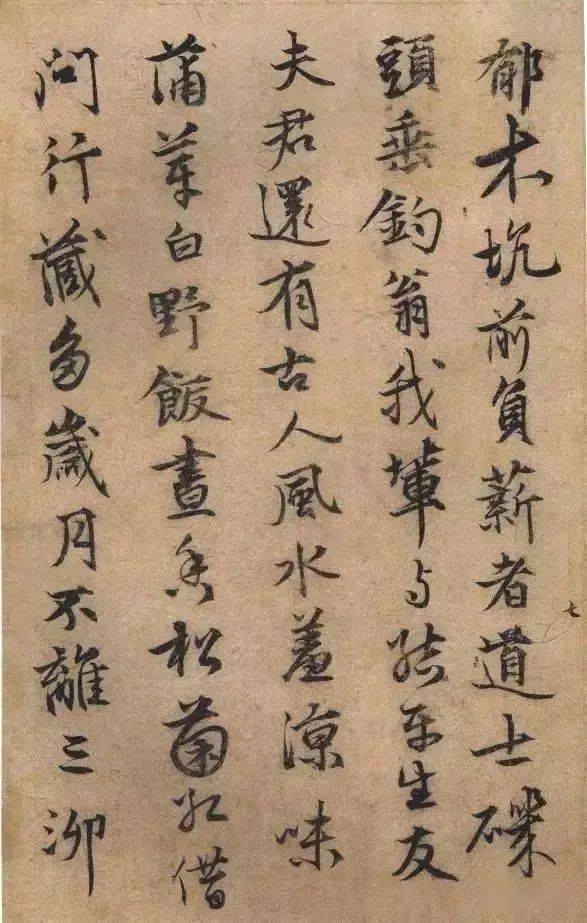 郁木坑前負薪者道士磯
頭垂釣翁我輩与結平生友
夫君還有古人風水羞涼味
蒲芽白野飯晝香松菌紅借
問行藏多歲月不離三泖
七